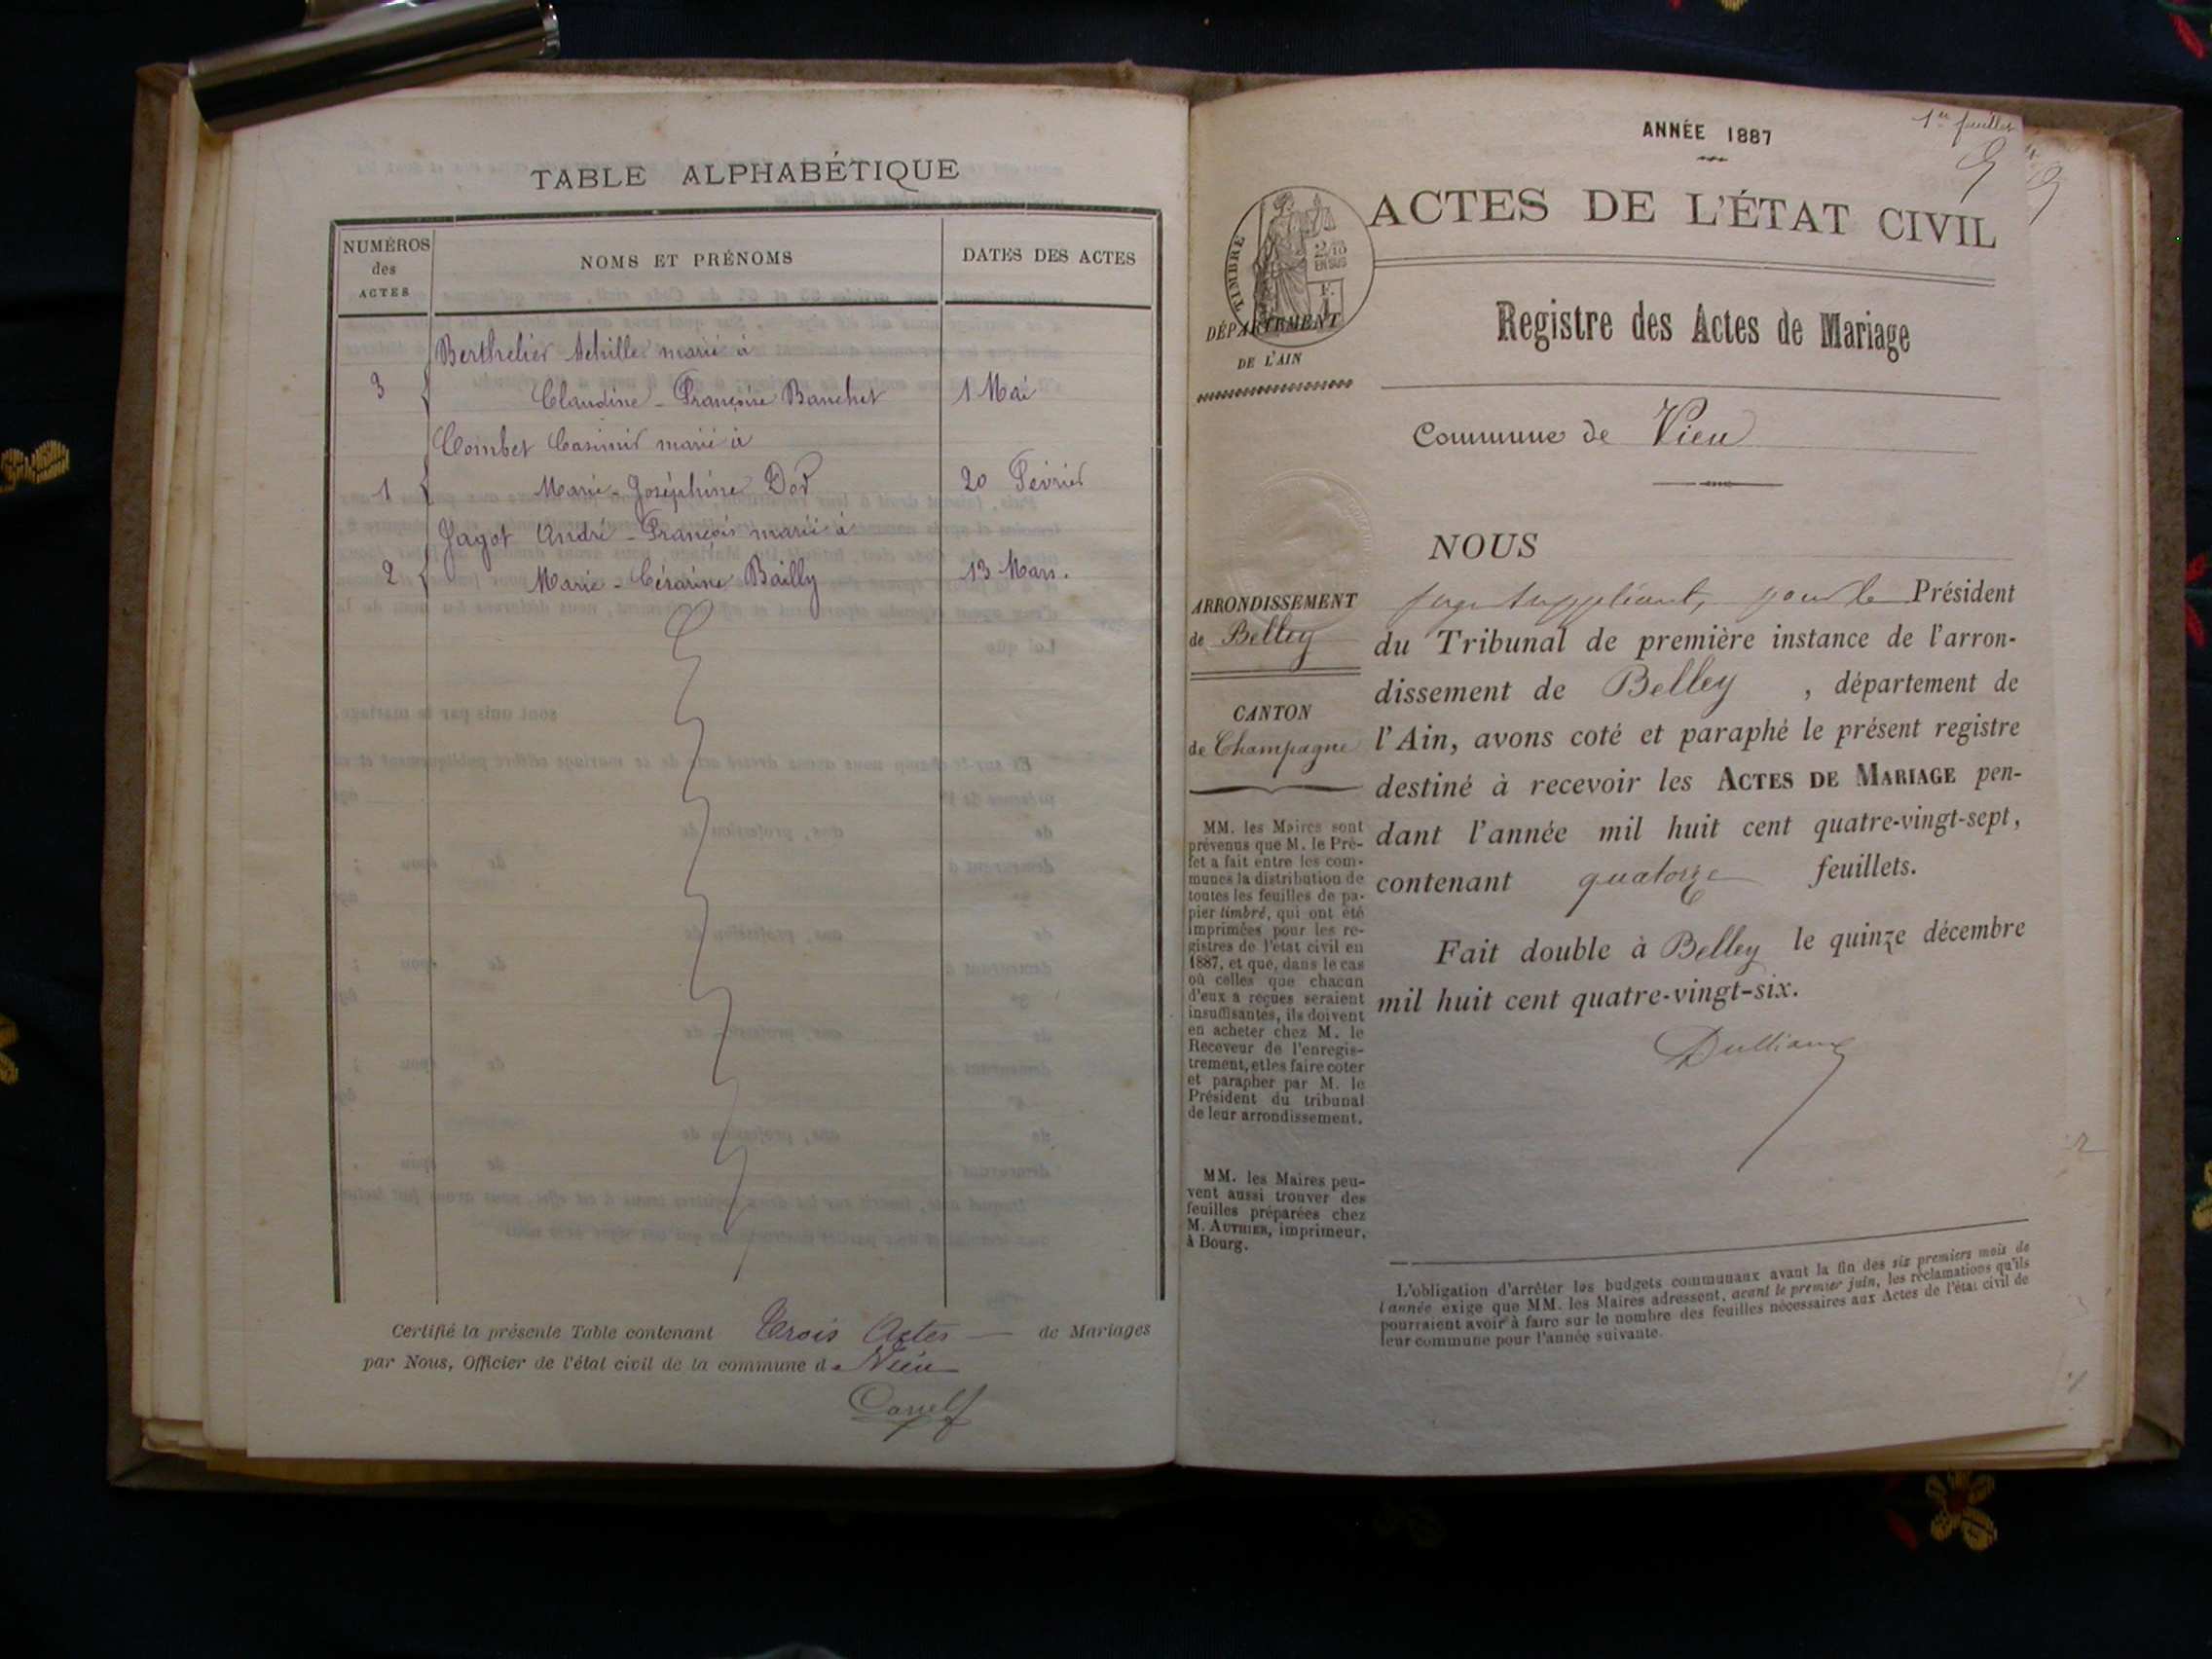 TABLE ALPHABÉTIQUE
NUMÉROS
des
ACTES
NOMS ET PRÉNOMS
DATES DES ACTES
Berthelier Achille marié à
3 Claudine - Françoise Banchet 1 Mai
Combet Casimir marié à
1 Marie - Joséphine Dod 20 Février
Jagot André - François marié à
2 Marie - Césarine Bailly 13 Mars.
Certifié la présente Table contenant Trois Actes — de Mariages
par Nous, Officier de l'état civil de la commune de Vieu
1er feuillet
ANNÉE 1887
ACTES DE L'ÉTAT CIVIL
TIMBRE
2/10
EN SUS
DÉPARTEMENT
DE L'AIN
Registre des Actes de Mariage
Commune de Vieu
ARRONDISSEMENT
de Belley
CANTON
de Champagne
MM. les Maires sont
prévenus que M. le Pré-
fet a fait entre les com-
munes la distribution de
toutes les feuilles de pa-
pier timbré, qui ont été
imprimées pour les re-
gistres de l'état civil en
1887, et que, dans le cas
où celles que chacun
d'eux a reçues seraient
insuffisantes, ils doivent
en acheter chez M. le
Receveur de l'enregis-
trement, et les faire coter
et parapher par M. le
Président du tribunal
de leur arrondissement.
MM. les Maires peu-
vent aussi trouver des
feuilles préparées chez
M. AUTHIER, imprimeur,
à Bourg.
NOUS
juge suppléant, pour le Président
du Tribunal de première instance de l'arron-
dissement de Belley , département de
l'Ain, avons coté et paraphé le présent registre
destiné à recevoir les ACTES DE MARIAGE pen-
dant l'année mil huit cent quatre-vingt-sept,
contenant quatorze feuillets.
Fait double à Belley le quinze décembre
mil huit cent quatre-vingt-six.
L'obligation d'arrêter les budgets communaux avant la fin des six premiers mois de
l'année exige que MM. les Maires adressent, avant le premier juin, les réclamations qu'ils
pourraient avoir à faire sur le nombre des feuilles nécessaires aux Actes de l'état civil de
leur commune pour l'année suivante.